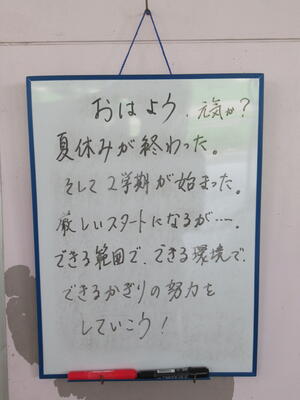 おはよう、元気か?
夏休みが終わった。
そして2学期が始まった。
厳しいスタートになるが…。
できる範囲で、できる環境で、
できるかぎりの努力を
していこう!